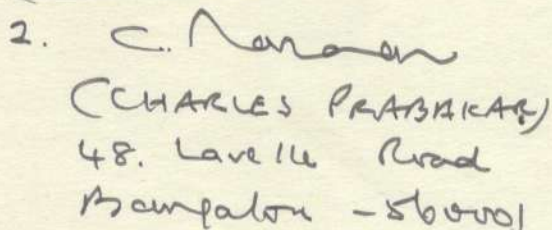 2. C.
(CHARLES PRABAKAR)
48. Lavelle Road
Bangalore - 560001